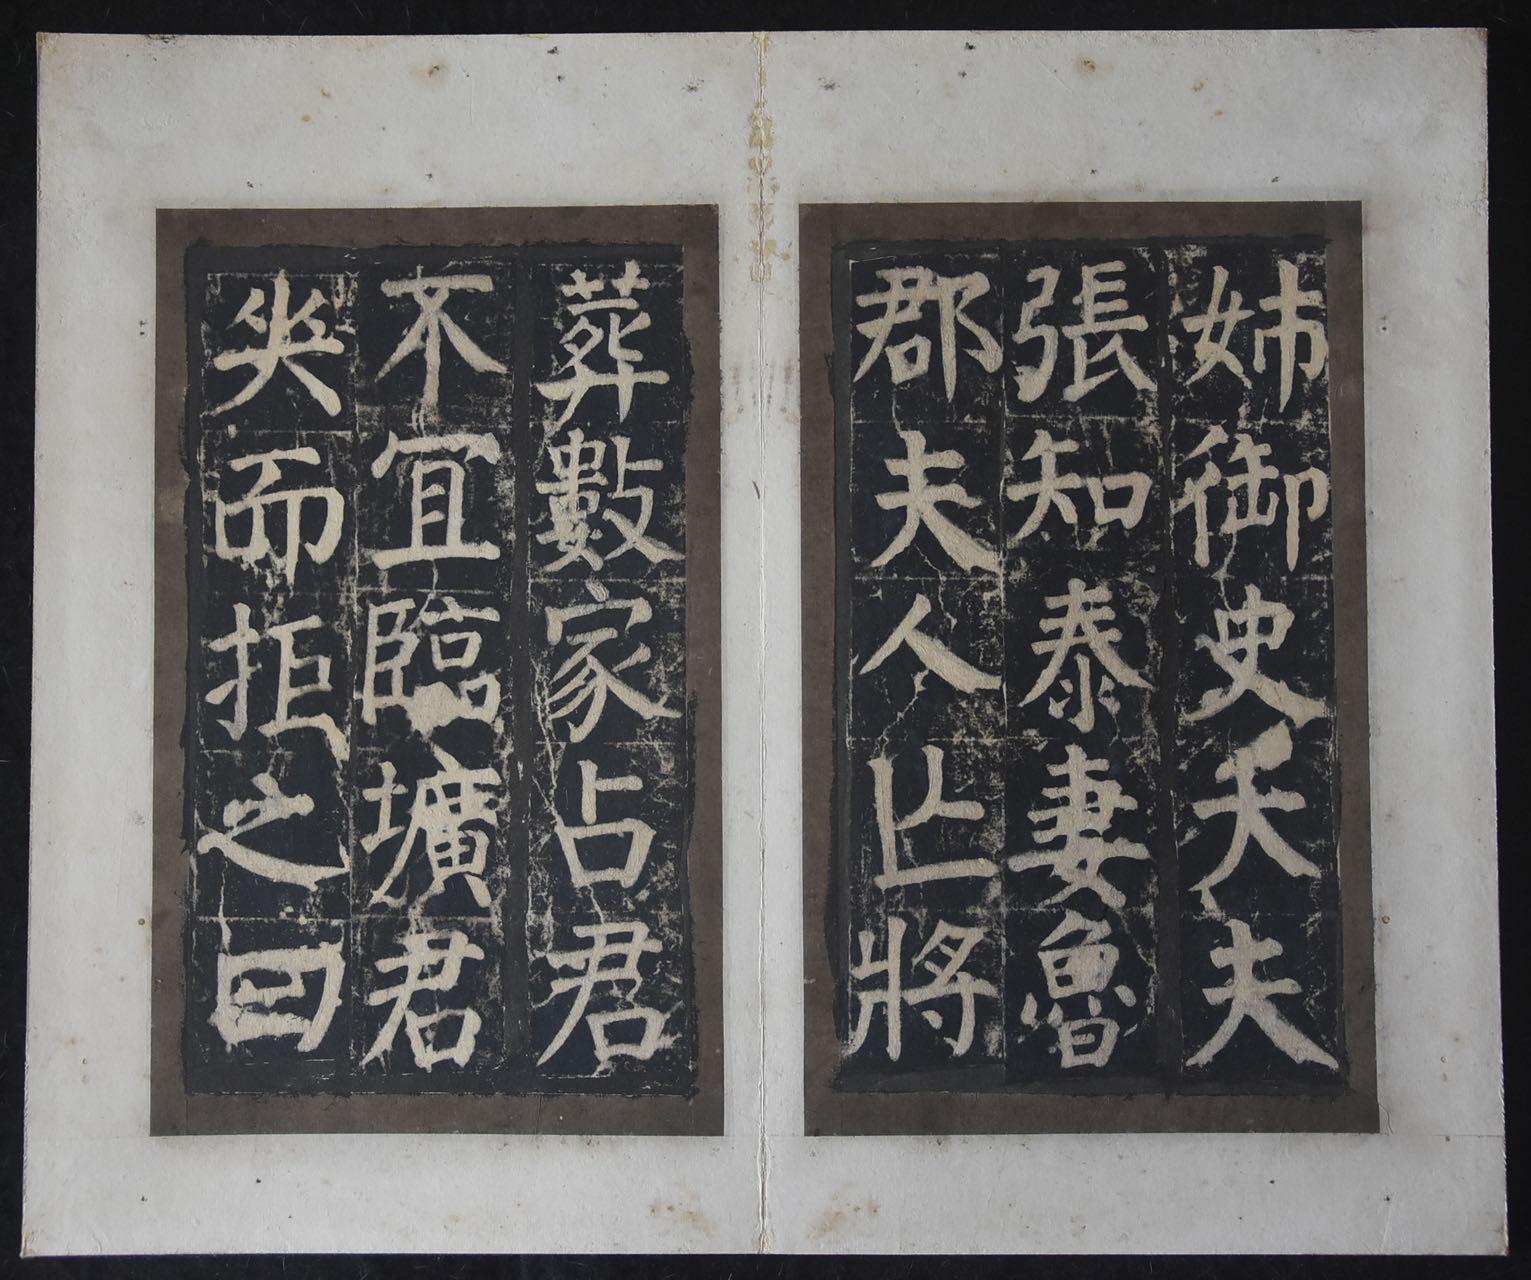 姉御史夫夫
張知泰妻魯
郡夫人亡將
葬數家占君
不宜臨壙君
哭而拒之曰